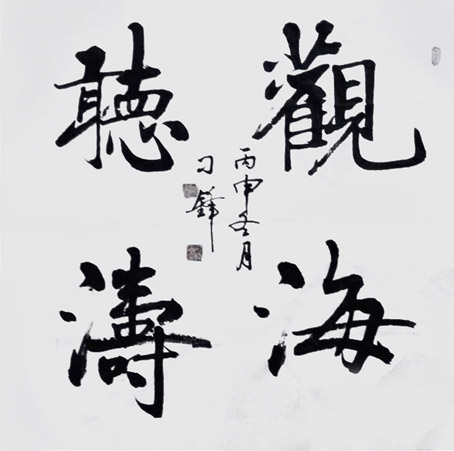 觀海
聽濤
丙申冬月
刁鋒